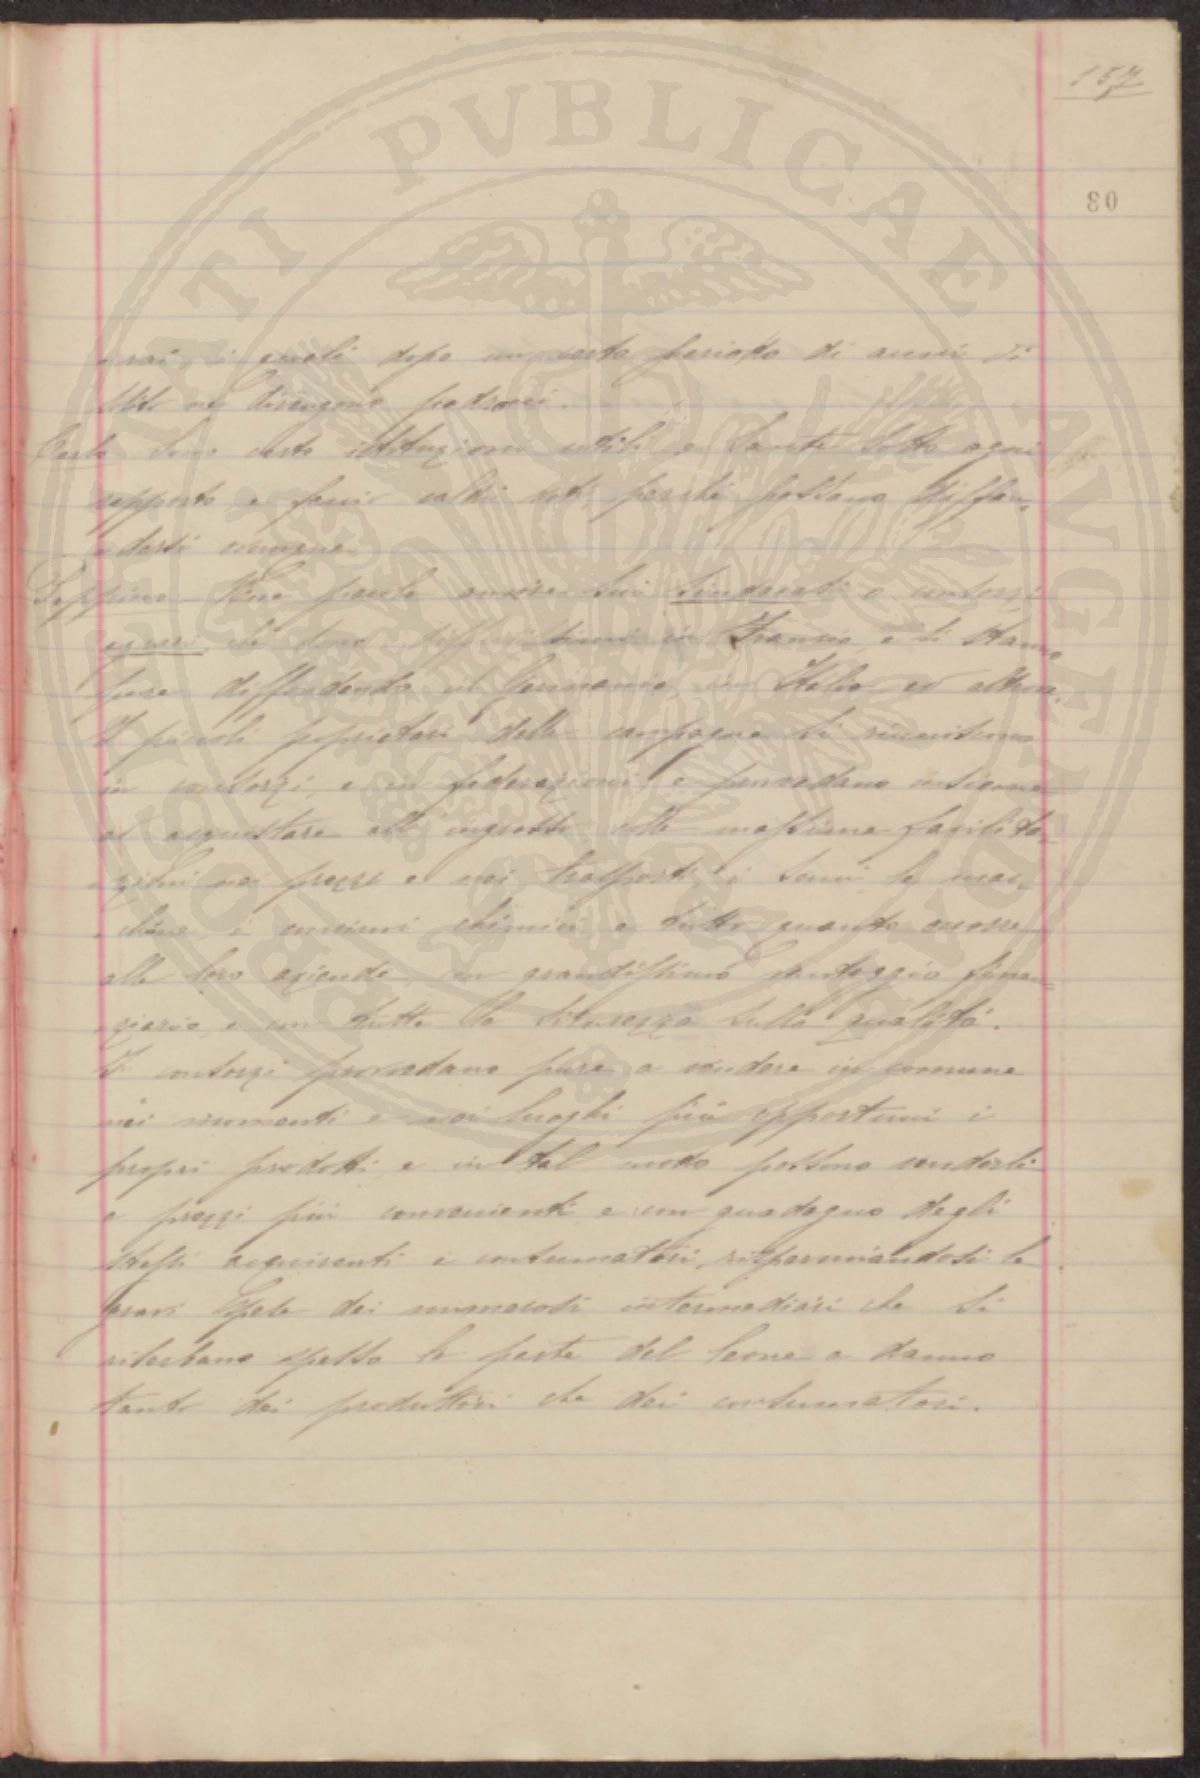 157
80
rai, i quali dopo un certo periodo di anni di
ne divengono padroni.
Carlo Sono certo istituzioni utili e sante sotto ogni
rapporto e faccio caldi voti perchè possano diffon-
dersi ovunque
Peppino - Due parole ancora sui sindacati o consorzi
agrari che sono diffusissimi in Francia, e si stanno
pure diffondendo in Germania, in Italia ed altrove.
I piccoli proprietari delle campagne si riuniscono
in consorzi, e in federazioni e provvedono insieme
ad acquistare all'ingrosso colle massime facilita-
zioni nei prezzi e nei trasporti i semi, le mac-
chine, i concimi chimici e tutto quanto occorre
alle loro aziende, con grandissimo vantaggio finan-
ziario e con tutta la sicurezza sulla qualità.
I consorzi provvedono pure a vendere in comune
nei momenti e nei luoghi più opportuni i
propri prodotti, e in tal modo possono venderli
a prezzi più convenienti e con guadagno degli
stessi acquirenti e consumatori, risparmiandosi le
gravi spese dei numerosi intermediari che si
riserbano spesso la parte del leone a danno
tanto dei produttori che dei consumatori.
PVBLICAE